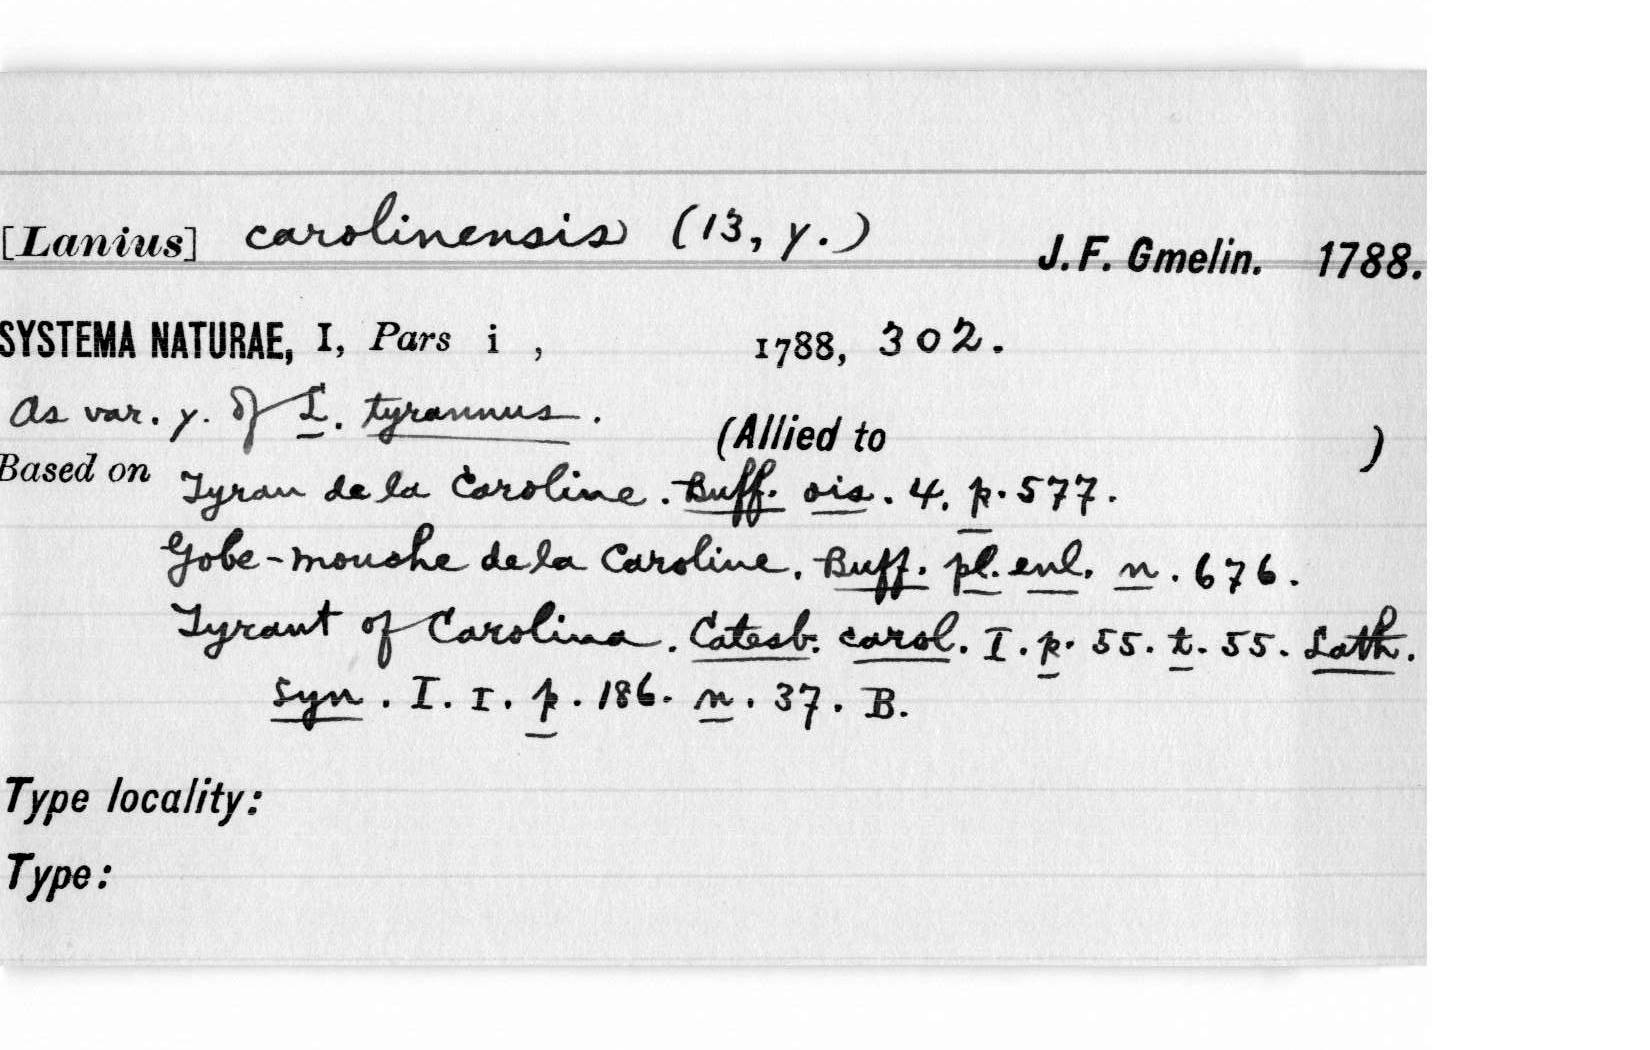 [Lanius] carolinensis (13, γ.) J. F. Gmelin. 1788.
SYSTEMA NATURAE, I, Pars i , 1788, 302.
As var. γ. of L. tyrannus.
(Allied to )
Based on Tyran de la Caroline. Buff. ois. 4. p. 577.
Gobe-mouche de la Caroline. Buff. pl. enl. n. 676.
Tyrant of Carolina. Catesb. carol. I. p. 55. t. 55. Lath.
syn. I. I. p. 186. n. 37. B.
Type locality:
Type: